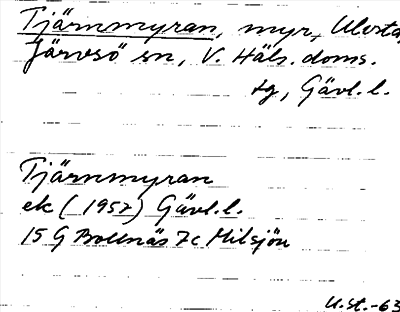 Tjärnmyran, myr, Ulvsta,
Järvsö sn, V. Häls. doms.
tg, Gävl. l.
Tjärnmyran
ek (1957) Gävl. l.
15 G Bollnäs 7c Milsjön
U.St.-63